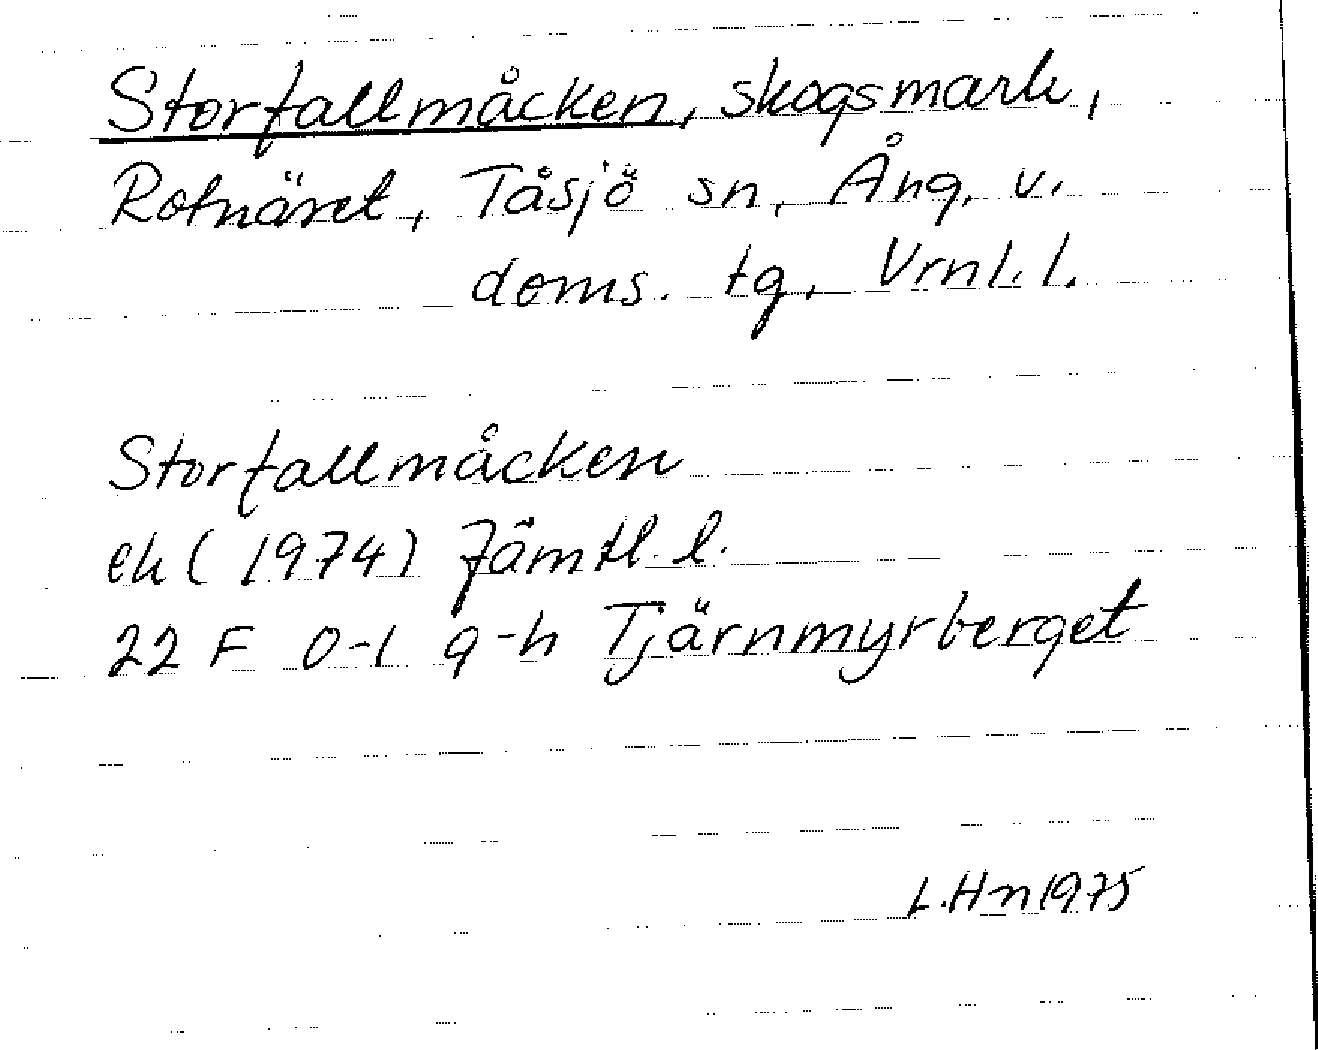 Storfallmåcken, skogsmark,
Rotnäret, Tåsjö sn, Ång. v.
doms. tg, Vrnl. l.
Storfallmåcken
ek (1974) Jämtl. l.
22 F 0-1 g-h Tjärnmyrberget
L.Hn 1975